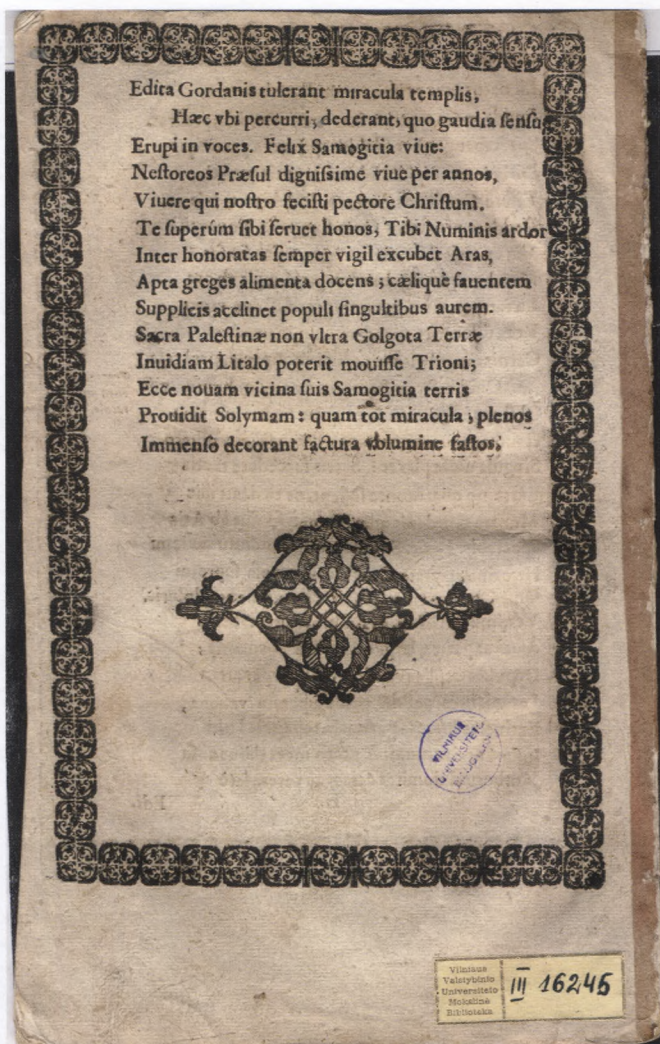 Edita Gordanis tulerant miracula templis,
Hæc vbi percurri, dederant, quo gaudia sensu,
Erupi in voces. Felix Samogitia viue:
Nestoreos Præsul dignissime viue per annos,
Viuere qui nostro fecisti pectore Christum.
Te superûm sibi seruet honos, Tibi Numinis ardor
Inter honoratas semper vigil excubet Aras,
Apta greges alimenta dòcens; cæliquè fauentem
Supplicis acclinet populi singultibus aurem.
Sacra Palestinæ non vltra Golgota Terræ
Inuidiam Litalo poterit mouisse Trioni;
Ecce nouam vicina suis Samogitia terris
Prouidit Solymam: quam tot miracula, plenos
Immenso decorant factura volumine fastos.
VILNIAUS
UNIVERSITETO
Vilniaus
Valstybinio
Universiteto
Mokslinė
Biblioteka
III 16245